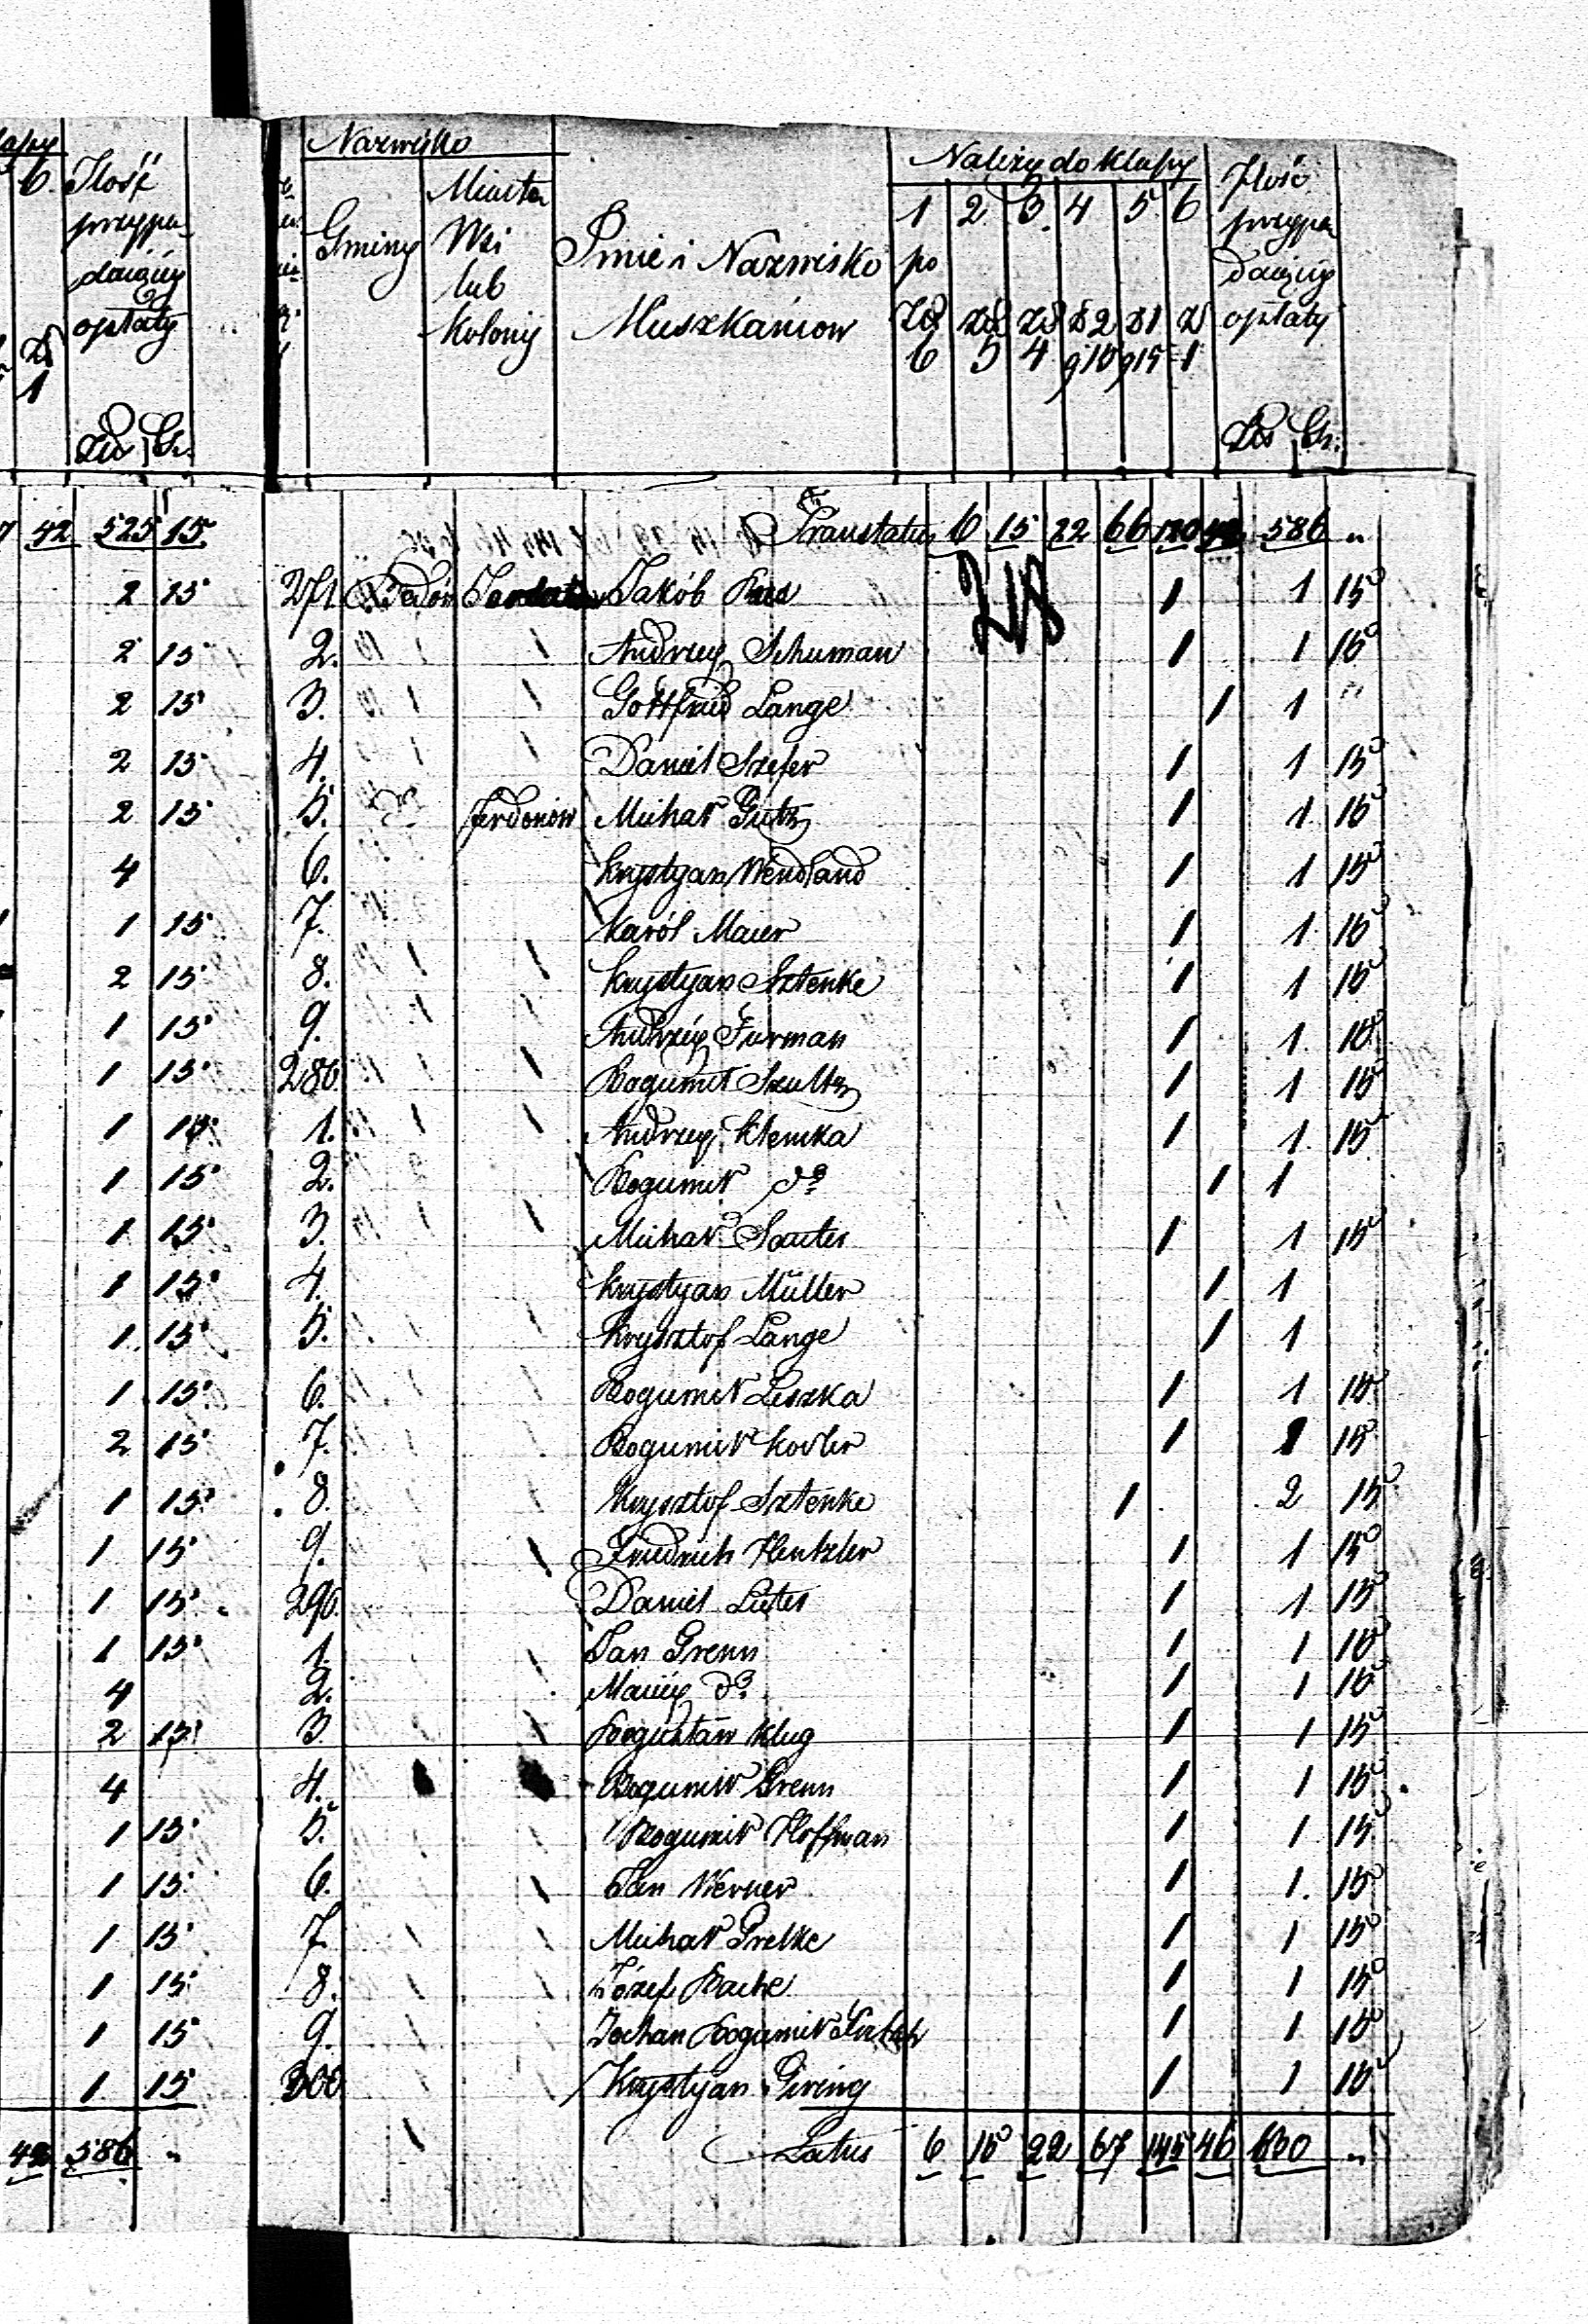 6. Ilość
przypa-
dającej
opłaty
Zł
1
Zło Gr.
42 525 15
2 15
2 15
2 15
2 15
2 15
4
1 15
2 15
1 15
1 15
1 15
1 15
1 15
1 15
1 15
1 15
2 15
1 15
1 15
1 15
1 15
4
2 15
4
1 15
1 15
1 15
1 15
1 15
1 15
42 586 "
Nazwisko
Gminy Miasta Wsi lub Kolonij
Imie i Nazwisko Mieszkańcow
Należy do klassy
1 2 3. 4 5 6
po
Zł Zł Zł Zł 2 Zł 1 Zł
6 5 4 g10 g15 1
Ilość przypa dającej opłaty
Zło Gr.
Transtatus 6 15 22 66 120 42 586 "
271. Jakób 1 1 15
2. Andrzey Schuman 1 1 15
3. Gottfried Lange 1 1 "
4. Daniel Szefer 1 1 15
5. Ferdonów Michał Gutz 1 1 15
6. Krystyan Wendland 1 1 15
7. Karól Maier 1 1 15
8. Krystyan Sztenke 1 1 15
9. Andrzey Furman 1 1 15
280. Bogumił Szultz 1 1 15
1. Andrzey Klemka 1 1 15
2. Bogumił do 1 1
3. Michał Sauter 1 1 15
4. Krystyan Müller 1 1
5. Krysztof Lange 1 1
6. Bogumił Liszka 1 1 15
7. Bogumił 1 1 15
8. Krysztof Sztenke 1 2 15
9. Friedrich Hentzler 1 1 15
290. Daniel Luter 1 1 15
1. Jan Grenn 1 1 15
2. Maciey do 1 1 15
3. Bogusław Klug 1 1 15
4. Bogumił Grenn 1 1 15
5. Bogumił Hoffman 1 1 15
6. Jan Werner 1 1. 15
7. Michał Prelke 1 1 15
8. Józef Bache 1 1 15
9. Johan Bogumił 1 1 15
300 Krystyan Giring 1 1 15
Latus 6 15 22 67 145 46 630 "